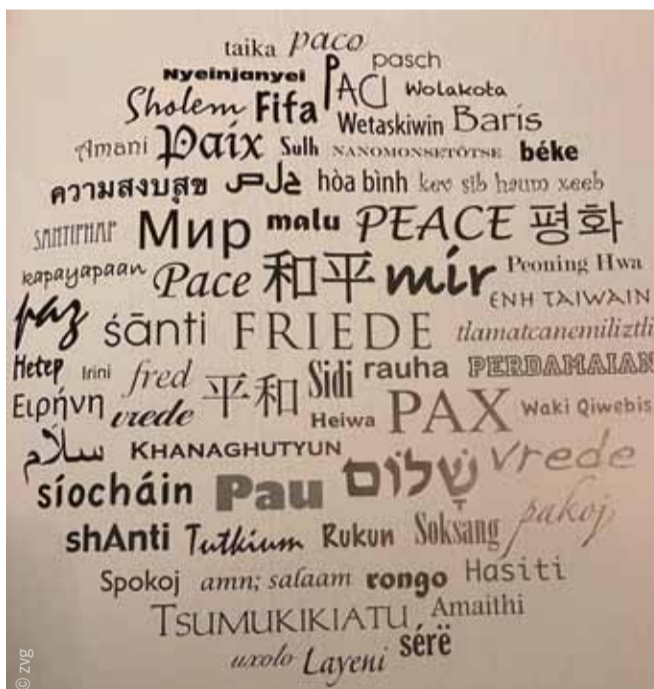 taika paco
pasch
Nyeinjanyei PACI Wolakota
Sholem Fifa Wetaskiwin Baris
Amani Paix Sulh NANOMONSETÔTSE béke
ความสงบสุข hòa bình kev sib haum xeeb
SANTIPHAP Мир malu PEACE 평화
kapayapaan Pace 和平 mír Peoning Hwa
ENH TAIWAIN
paz śānti FRIEDE tlamatcanemiliztli
Hetep Irini fred 平和 Sidi rauha PERDAMAIAN
Ειρήνη vrede Heiwa PAX Waki Qiwebis
سلام KHANAGHUTYUN שָׁלוֹם vrede
síocháin Pau
shAnti Tutkium Rukun Soksang pakoj
Spokoj amn; salaam rongo Hasiti
TSUMUKIKIATU Amaithi
uxolo Layeni sérë
© zvg